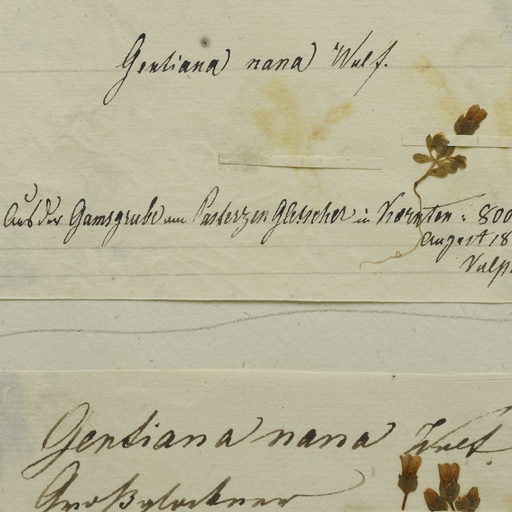 Gentiana nana Wulf.
Aus der Gamsgrube am Pasterzen Gletscher in Kärnten : 800
August 18
Vulp
Gentiana nana Wulf
Großglockner